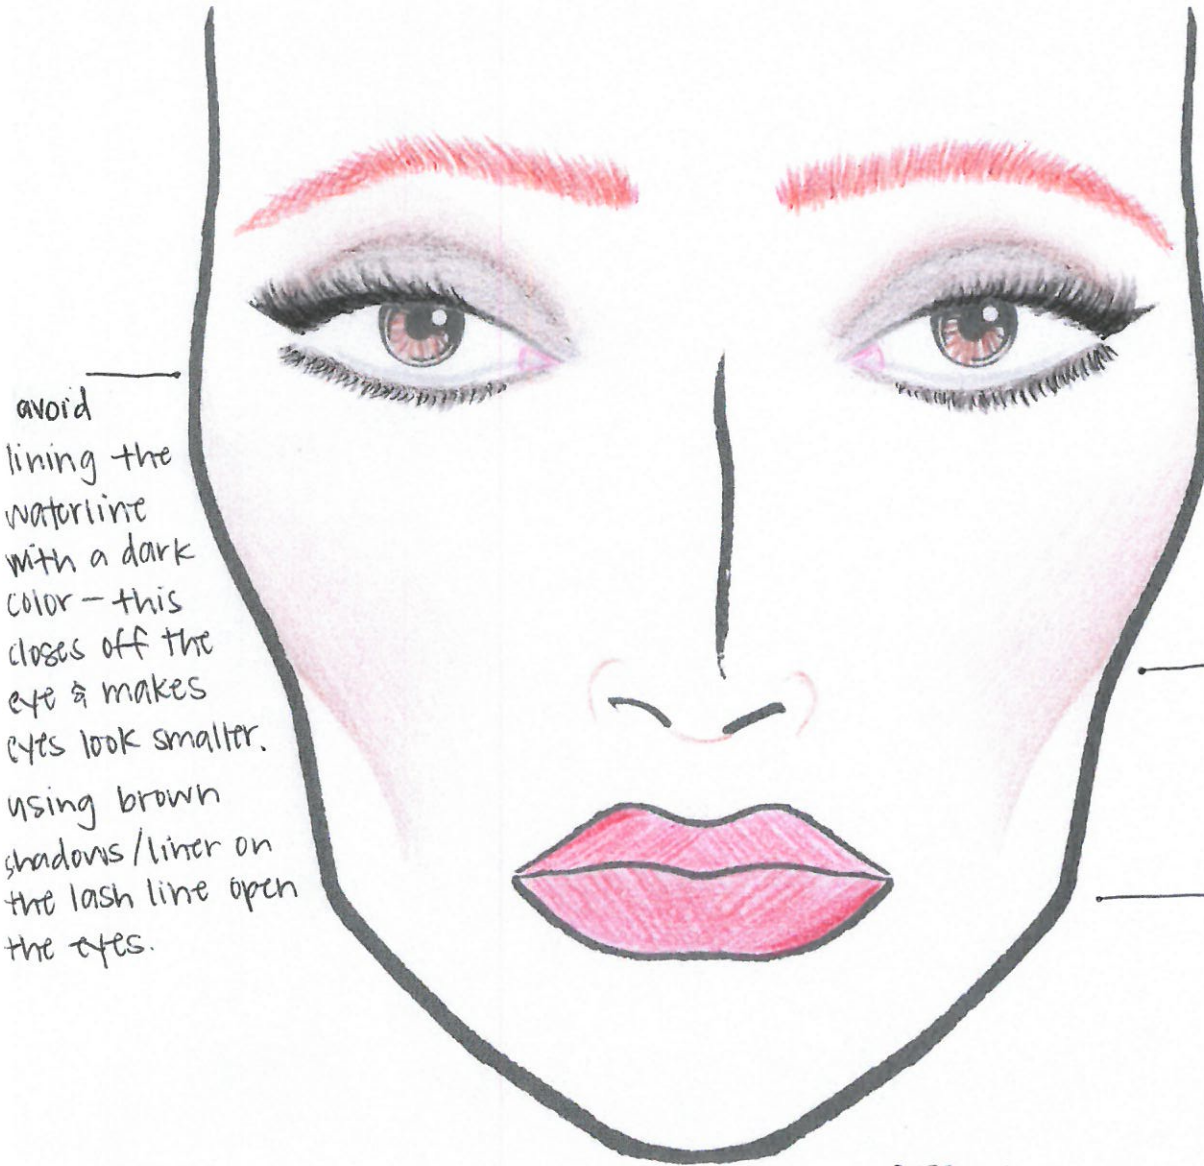 avoid
lining the
waterline
with a dark
color - this
closes off the
eye & makes
eyes look smaller.
using brown
shadows/liner on
the lash line open
the eyes.